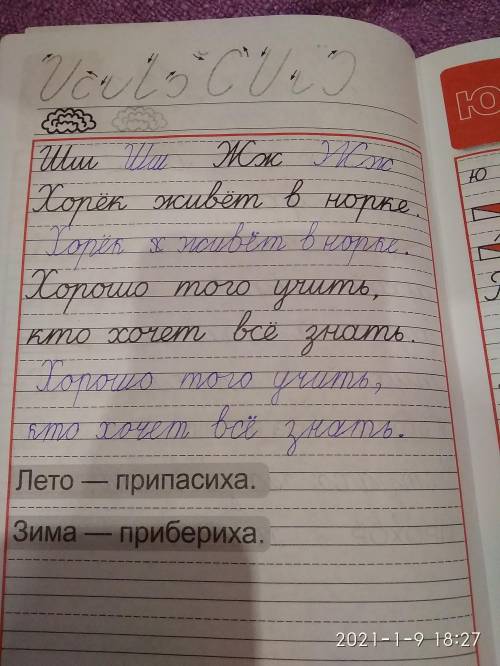 Шш Шш Жж Жж
Хорёк живёт в норке.
Хорёк х живёт в норке.
Хорошо того учить,
кто хочет всё знать.
Хорошо того учить,
кто хочет всё знать.
Лето — припасиха.
Зима — прибериха.
Ю
ю
Я
2021-1-9 18:27